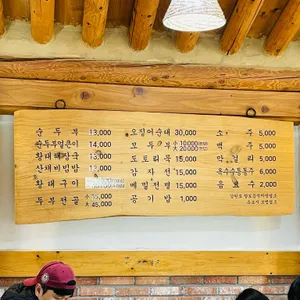 순두부 13,000
순두부얼큰이 14,000
황태해장국 13,000
산채비빔밥 13,000
황태구이
두부전골 小 35,000 大 45,000
오징어순대 30,000
모두부 小 10,000 大 20,000
도토리묵 15,000
감자전 15,000
메밀전병 15,000
공기밥 1,000
소주 5,000
맥주 5,000
막걸리 5,000
옥수수동동주 6,000
음료수 2,000